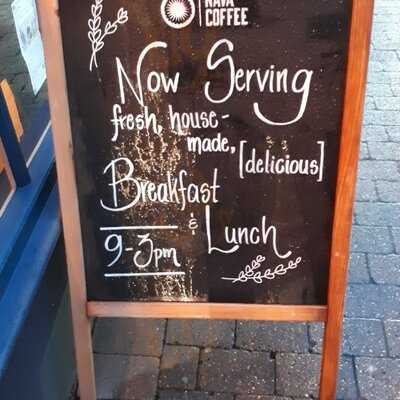 NAVA
COFFEE
Now Serving
fresh, house-
made,
[delicious]
Breakfast
& Lunch
9-3pm